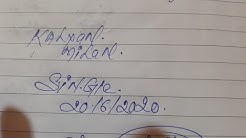 KALYAN.
MILAN.
SINGLE.
20/6/2020.